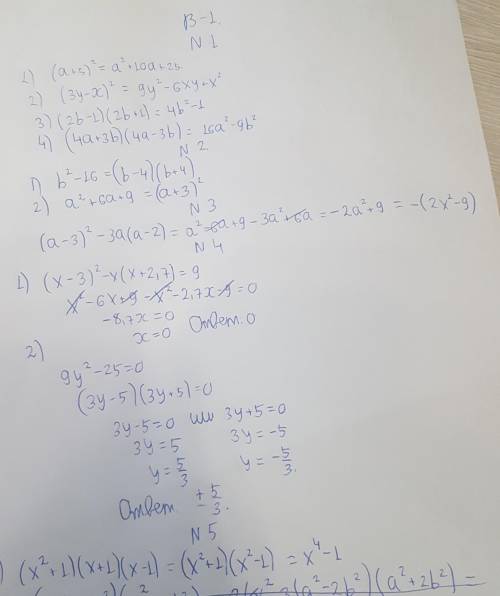 В-1.
N 1
1) (a+5)² = a²+10a+25
2) (3y-x)² = 9y²-6xy+x²
3) (2b-1)(2b+1) = 4b²-1
4) (4a+3b)(4a-3b) = 16a²-9b²
N 2
1) b²-16 = (b-4)(b+4)
2) a²+6a+9 = (a+3)²
N 3
(a-3)²-3a(a-2) = a²-6a+9-3a²+6a = -2a²+9 = -(2x²-9)
N 4
1) (x-3)²-x(x+2,7) = 9
x²-6x+9-x²-2,7x-9=0
-8,7x=0
x=0 Ответ: 0
2)
9y²-25=0
(3y-5)(3y+5)=0
3y-5=0 или 3y+5=0
3y=5 3y=-5
y=5/3 y=-5/3.
Ответ: ±5/3.
N 5
) (x²+1)(x+1)(x-1) = (x²+1)(x²-1) = x⁴-1
(a²-2b²)(a²+2b²) =